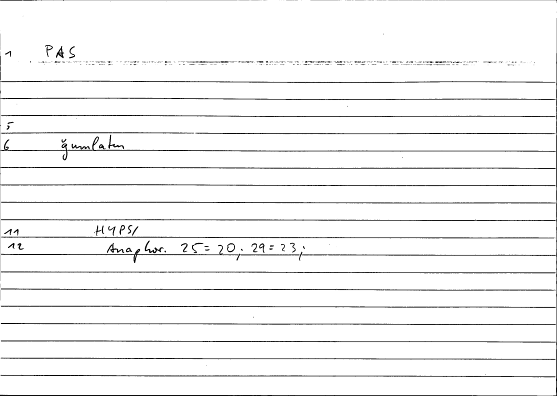 1 PAS
5
6 ğumlatun
11 HYPS/
12 Anaphor. 25 = 20; 29 = 23;